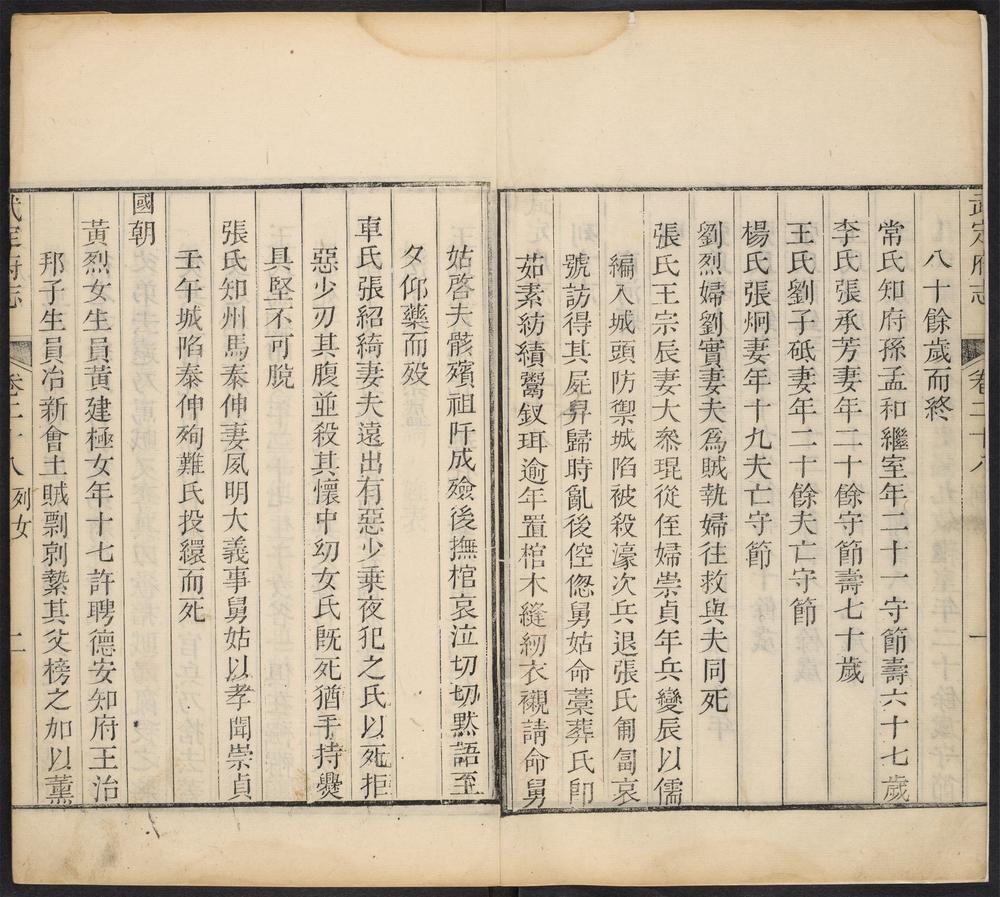 武定府志
卷二十八
一
八十餘歲而終
常氏知府孫孟和繼室年二十一守節壽六十七歲
李氏張承芳妻年二十餘守節壽七十歲
王氏劉子砥妻年二十餘夫亡守節
楊氏張炯妻年十九夫亡守節
劉烈婦劉實妻夫爲賊執婦往救與夫同死
張氏王宗辰妻大叅琨從侄婦崇貞年兵變辰以儒
編入城頭防禦城陷被殺濠次兵退張氏匍匐哀
號訪得其屍舁歸時亂後倥偬舅姑命藁葬氏卽
茹素紡績鬻釵珥逾年置棺木縫紉衣襯請命舅
姑啓夫骸殯祖阡成殮後撫棺哀泣切切默語至
夕仰藥而歿
車氏張紹綺妻夫遠出有惡少乗夜犯之氏以死拒
惡少刃其腹並殺其懷中幼女氏旣死猶手持爨
具堅不可脫
張氏知州馬泰伸妻夙明大義事舅姑以孝聞崇貞
壬午城陷泰伸殉難氏投繯而死
國朝
黃烈女生員黃建極女年十七許聘德安知府王治
邦子生員冶新會土賊剽刦縶其父榜之加以薰
武定府志
卷二十八 列女
二